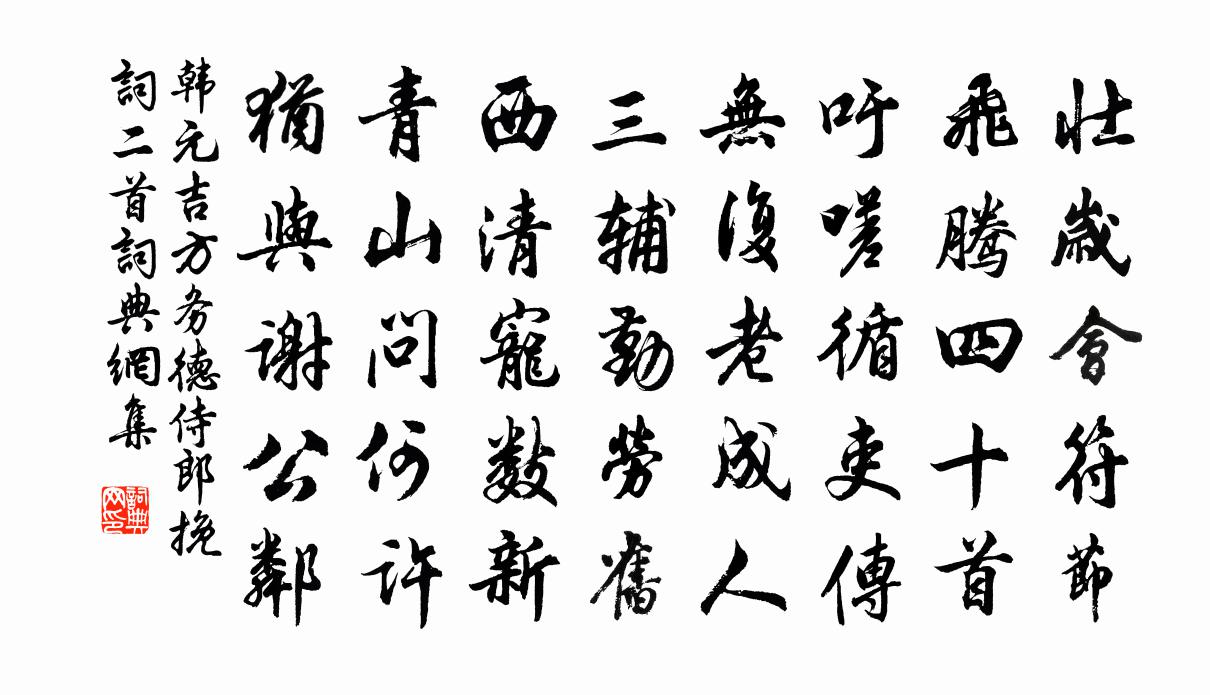 壮歳會符節
飛騰四十首
吁嗟循吏傳
無復老成人
三辅勤勞舊
西清寵数新
青山問何许
猶與谢公鄰
韩元吉方务德侍郎挽
詞二首詞典網集
詞典网印